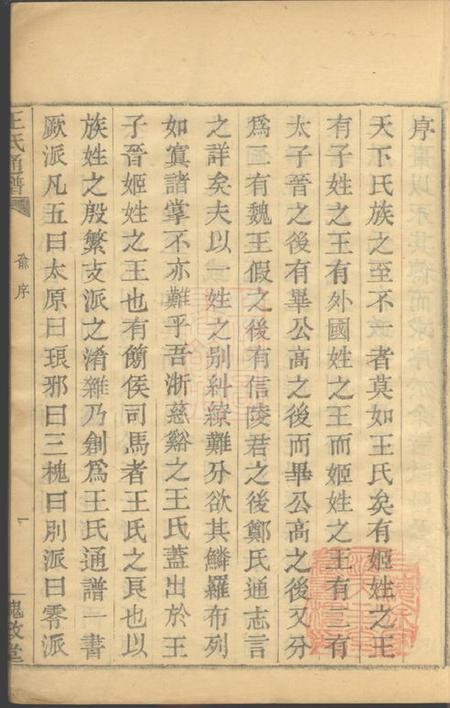 序
天下氏族之至不一者莫如王氏矣有姬姓之王
有子姓之王有外國姓之王而姬姓之王有二有
太子晉之後有畢公高之後而畢公高之後又分
爲二有魏王假之後有信陵君之後鄭氏通志言
之詳矣夫以一姓之别糾繚難分欲其鱗羅布列
如寘諸掌不亦難乎吾浙慈谿之王氏蓋出於王
子晉姬姓之王也有簡侯司馬者王氏之良也以
族姓之殷繁支派之淆雜乃創爲王氏通譜一書
厥派凡五曰太原曰琅邪曰三槐曰别派曰零派
王氏通譜
俞序
一
槐政堂